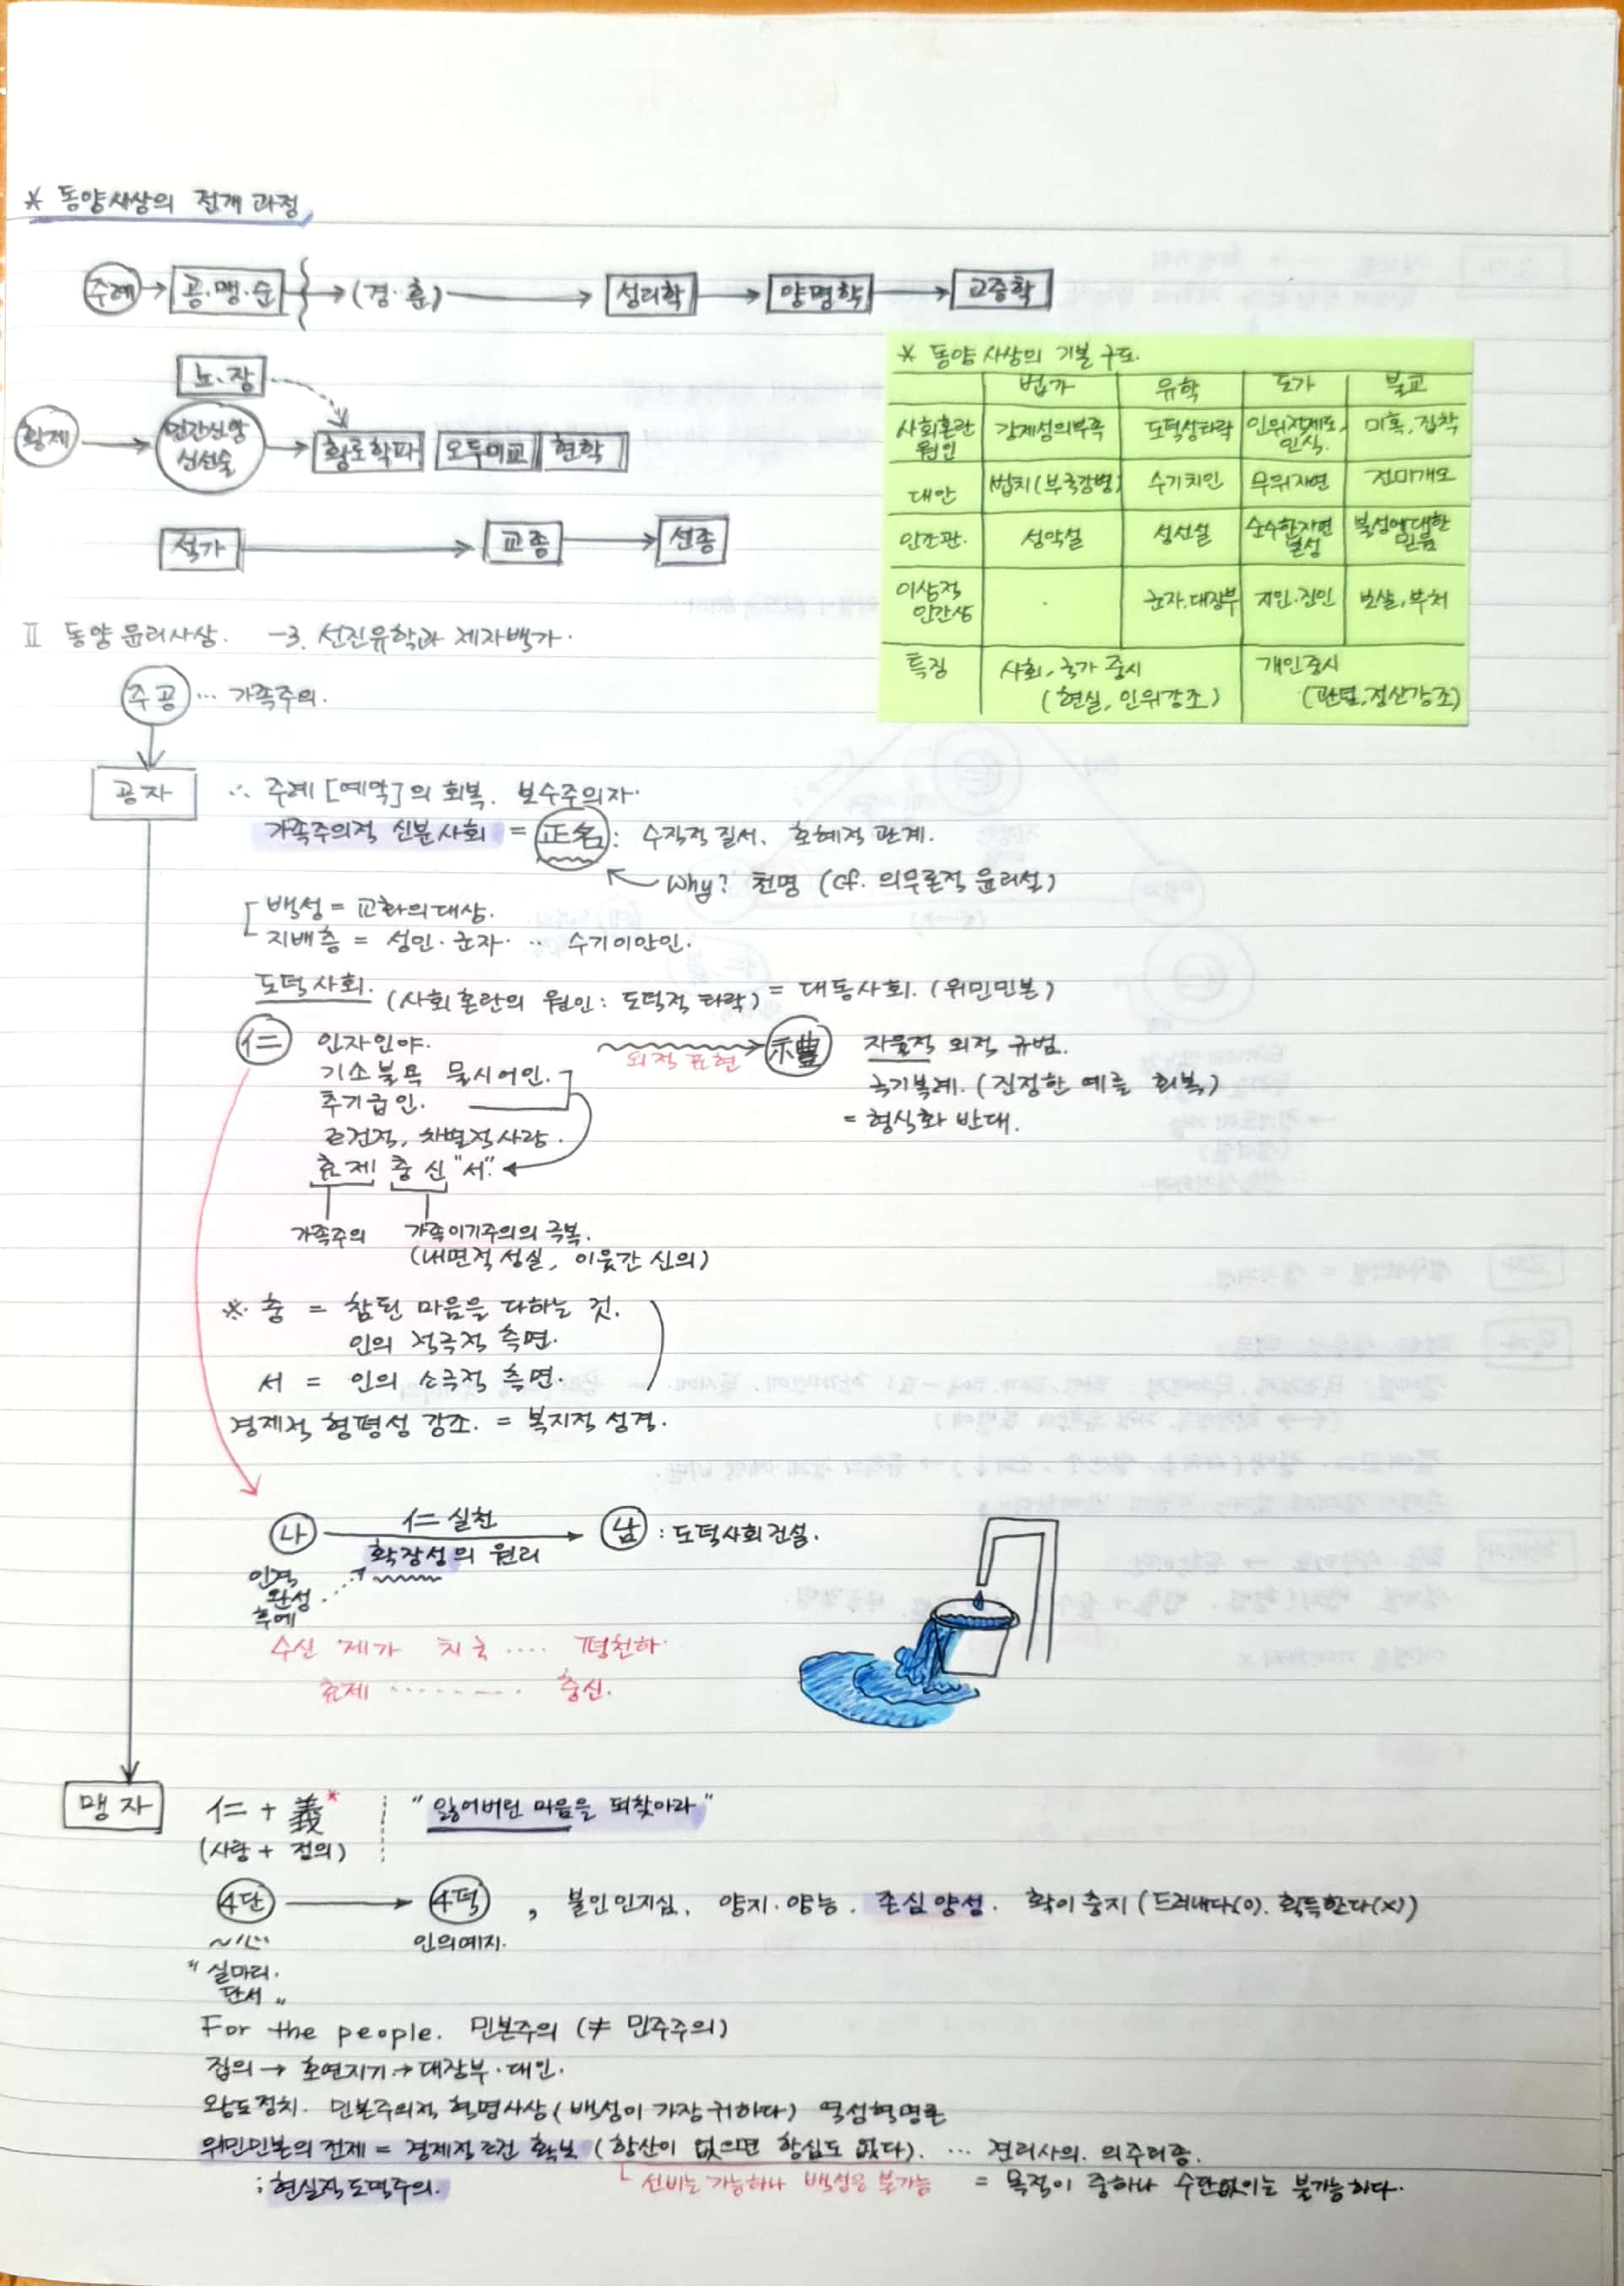 * 동양사상의 전개 과정
주례 → 공·맹·순 } → (경·훈) → 성리학 → 양명학 → 고증학
노·장
황제 → 민간신앙 신선술 → 황로학파 오두미교 현학
석가 → 교종 → 선종
* 동양 사상의 기본 구도.
법가 유학 도가 불교
사회혼란 원인 강제성의 부족 도덕성타락 인위적제도, 인식. 미혹, 집착
대안 법치(부국강병) 수기치인 무위자연 전미개오
인간관. 성악설 성선설 순수한자연 본성 불성에 대한 믿음
이상적 인간상 · 군자, 대장부 지인·진인 보살, 부처
특징 사회, 국가 중시 개인중시
(현실, 인위강조) (관념, 정신강조)
Ⅱ 동양 윤리사상. -3. 선진유학과 제자백가.
주공 … 가족주의.
공자 ∴ 주례 [예악]의 회복. 보수주의자.
가족주의적 신분사회 = 正名 : 수직적 질서, 호혜적 관계.
Why? 천명 (Cf. 의무론적 윤리설)
백성 = 교화의 대상.
지배층 = 성인·군자 … 수기이안인.
도덕사회. (사회혼란의 원인 : 도덕적 타락) = 대동사회. (위민민본)
仁 인자인야. 외적 표현 禮 자율적 외적 규범.
기소불욕 물시어인. 극기복례. (진정한 예를 회복)
추기급인. = 형식화 반대.
조건적, 차별적사랑.
효제 충신 "서".
가족주의 가족이기주의의 극복.
(내면적 성실, 이웃간 신의)
※ 충 = 참된 마음을 다하는 것.
인의 적극적 측면.
서 = 인의 소극적 측면.
경제적 형평성 강조. = 복지적 성격.
나 仁 실천 → 남 : 도덕사회 건설.
확장성의 원리
인격
완성
후에
수신 제가 치국 .... 평천하.
효제 ........ 충신.
맹자 仁 + 義* "잃어버린 마음을 되찾아라"
(사랑 + 정의)
4단 → 4덕 , 불인인지심, 양지·양능. 존심양성. 확이충지 (드러내다(o). 획득한다(x))
~心 인의예지.
"실마리.
단서"
For the people. 민본주의 (≠ 민주주의)
집의 → 호연지기 → 대장부·대인.
왕도정치. 민본주의적 혁명사상 (백성이 가장 귀하다) 역성혁명론
위민민본의 전제 = 경제적 조건 확보 (항산이 없으면 항심도 없다). … 견리사의. 의주리종.
: 현실적 도덕주의. 선비는 가능하나 백성은 불가능 = 목적이 중하나 수단없이는 불가능하다.